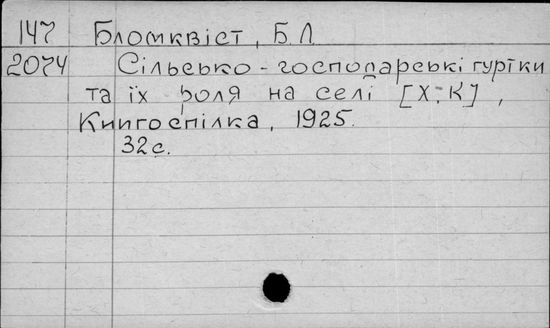 147 Бломквіст, Б. Л.
2074 Сільсько-господарські гуртки
та їх роля на селі [Х.: К],
Книгоспілка, 1925.
32 с.